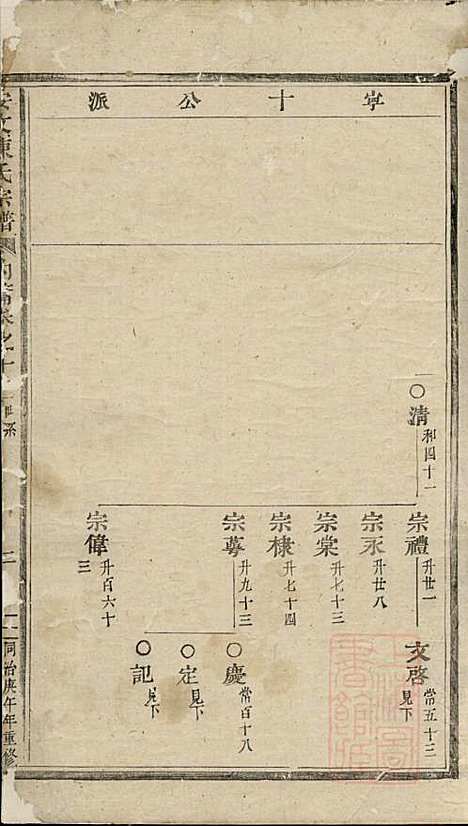 寧十公派
清 和四十一
宗禮 升廿一
宗永 升廿八
宗棠 升七十三
宗棣 升七十四
宗蕚 升九十三
宗偉 升百六十三
文啓 常五十三 見下
慶 常百十八
定 見下
記 見下
陳氏宗譜
同治庚午年重修